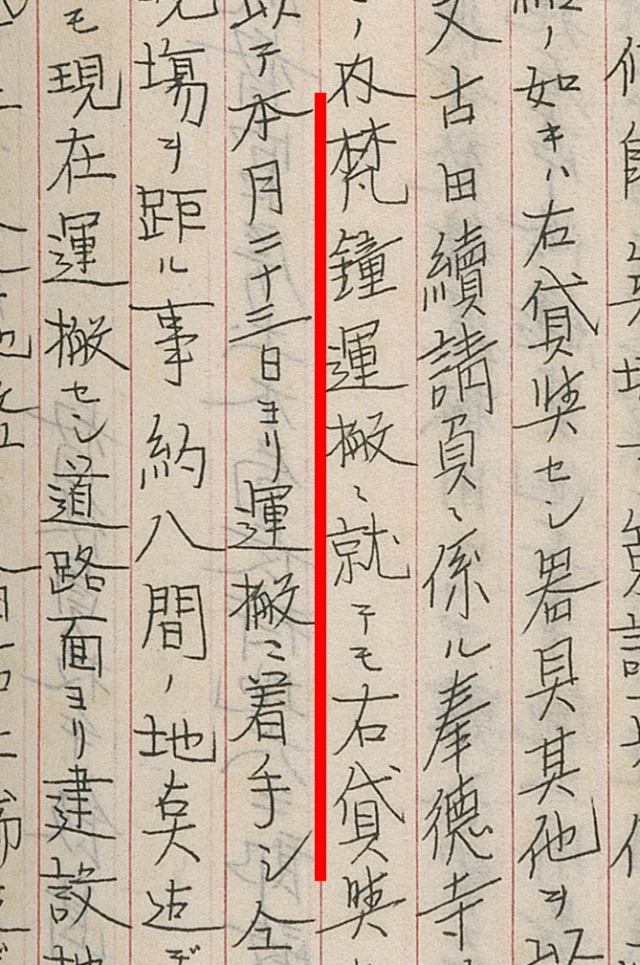 如キハ右貸與セシ器具其他ヲ以
又古田續請負ニ係ル奉德寺
ノ内梵鐘運搬ニ就テモ右貸與
以テ本月二十三日ヨリ運搬ニ着手シ今
現場ヲ距ル事約八間ノ地点迠デ
モ現在運搬セシ道路面ヨリ建設地